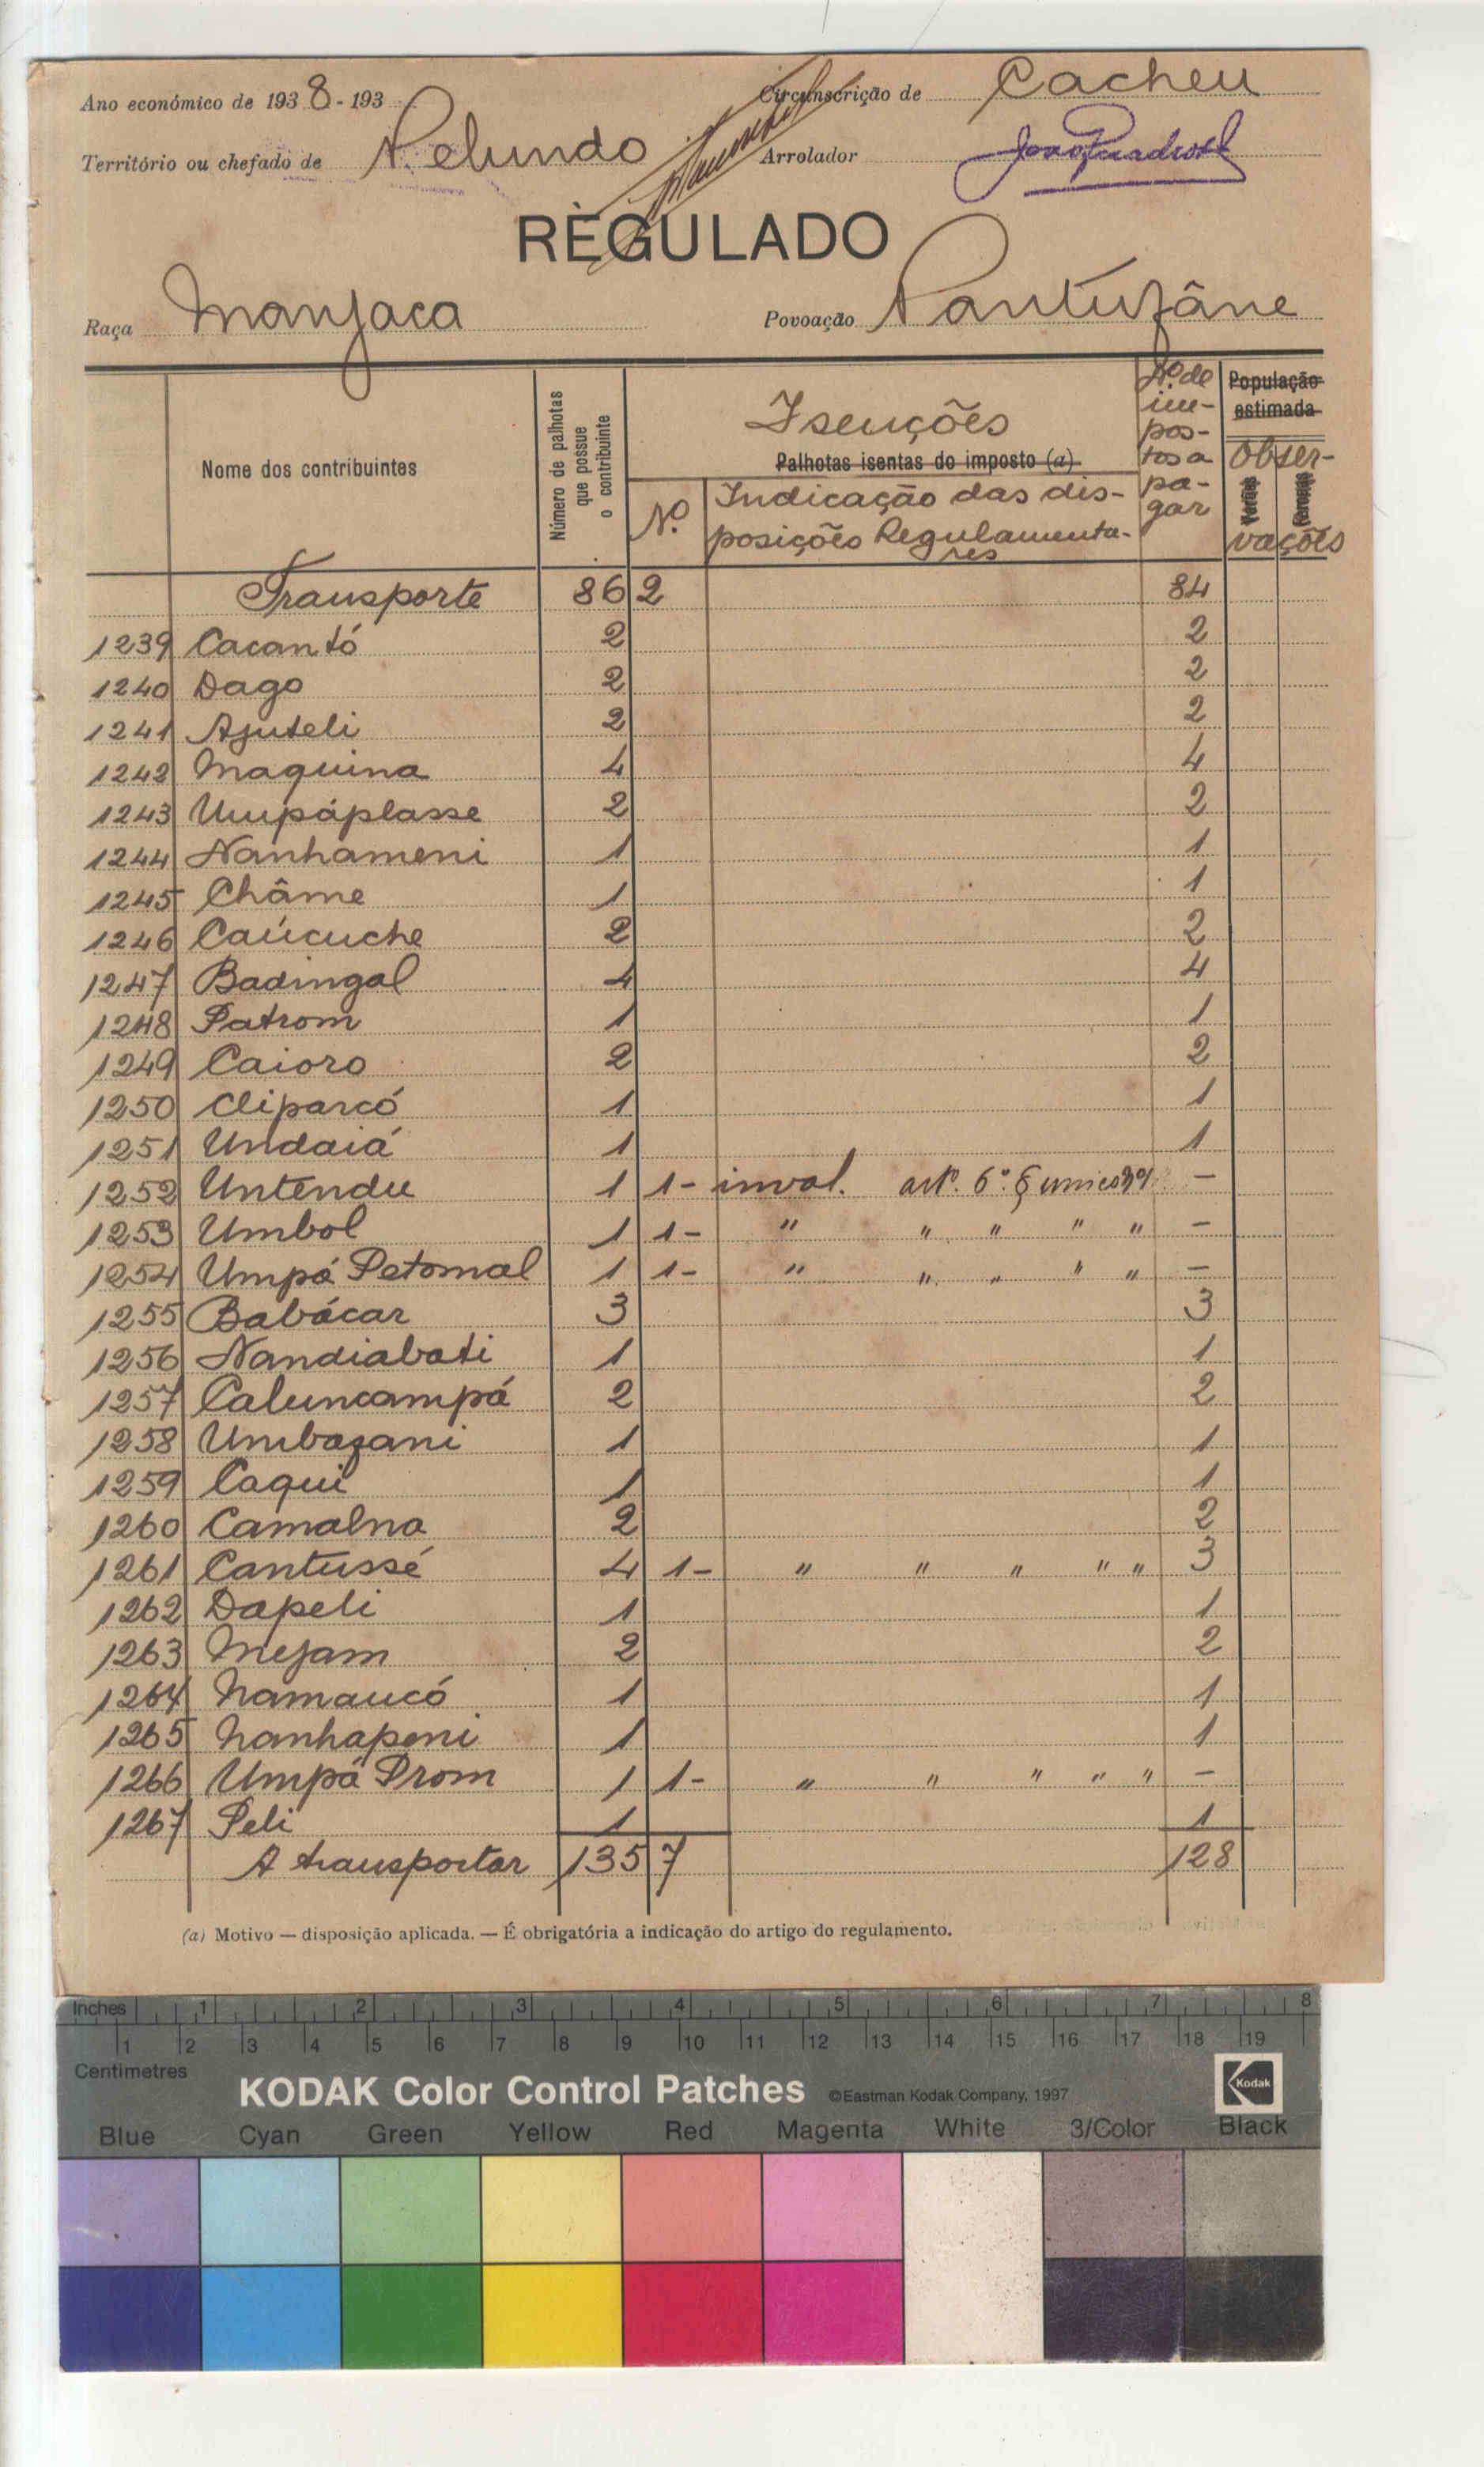 Ano económico de 1938-193 Circunscrição de Cacheu
Território ou chefado de Pelundo Arrolador
REGULADO
Raça Manjaca Povoação Pantufâne
Nome dos contribuintes
Número de palhotas que possue o contribuinte
Isenções
Palhotas isentas do imposto (a)
Nº
Indicação das dis-
posições Regulamenta-
res
Nº de
im-
pos-
tos a
pa-
gar
População
estimada
Obser-
Varões Femeas
vações
Transporte 86 2 84
1239 Cacantó 2 2
1240 Dago 2 2
1241 Ajuteli 2 2
1242 Maquina 4 4
1243 Umpáplasse 2 2
1244 Nanhameni 1 1
1245 Châme 1 1
1246 Caúcuche 2 2
1247 Badingal 4 4
1248 Patrom 1 1
1249 Caioro 2 2
1250 Cliparcó 1 1
1251 Undaiá 1 1
1252 Untendu 1 1- inval. artº. 6º. § unico -
1253 Umbol 1 1- " " " " " -
1254 Umpá Petomal 1 1- " " " " " -
1255 Babácar 3 3
1256 Nandiabati 1 1
1257 Caluncampá 2 2
1258 Umbazani 1 1
1259 Caqui 1 1
1260 Camalna 2 2
1261 Cantussé 4 1- " " " " " 3
1262 Dapeli 1 1
1263 Mejam 2 2
1264 Namaucó 1 1
1265 Nanhapeni 1 1
1266 Umpá Prom 1 1- " " " " " -
1267 Peli 1 1
A transportar 135 7 128
(a) Motivo — disposição aplicada. — É obrigatória a indicação do artigo do regulamento.
Inches 1 2 3 4 5 6 7 8
1 2 3 4 5 6 7 8 9 10 11 12 13 14 15 16 17 18 19
Centimetres
KODAK Color Control Patches ©Eastman Kodak Company, 1997 Kodak
Blue Cyan Green Yellow Red Magenta White 3/Color Black